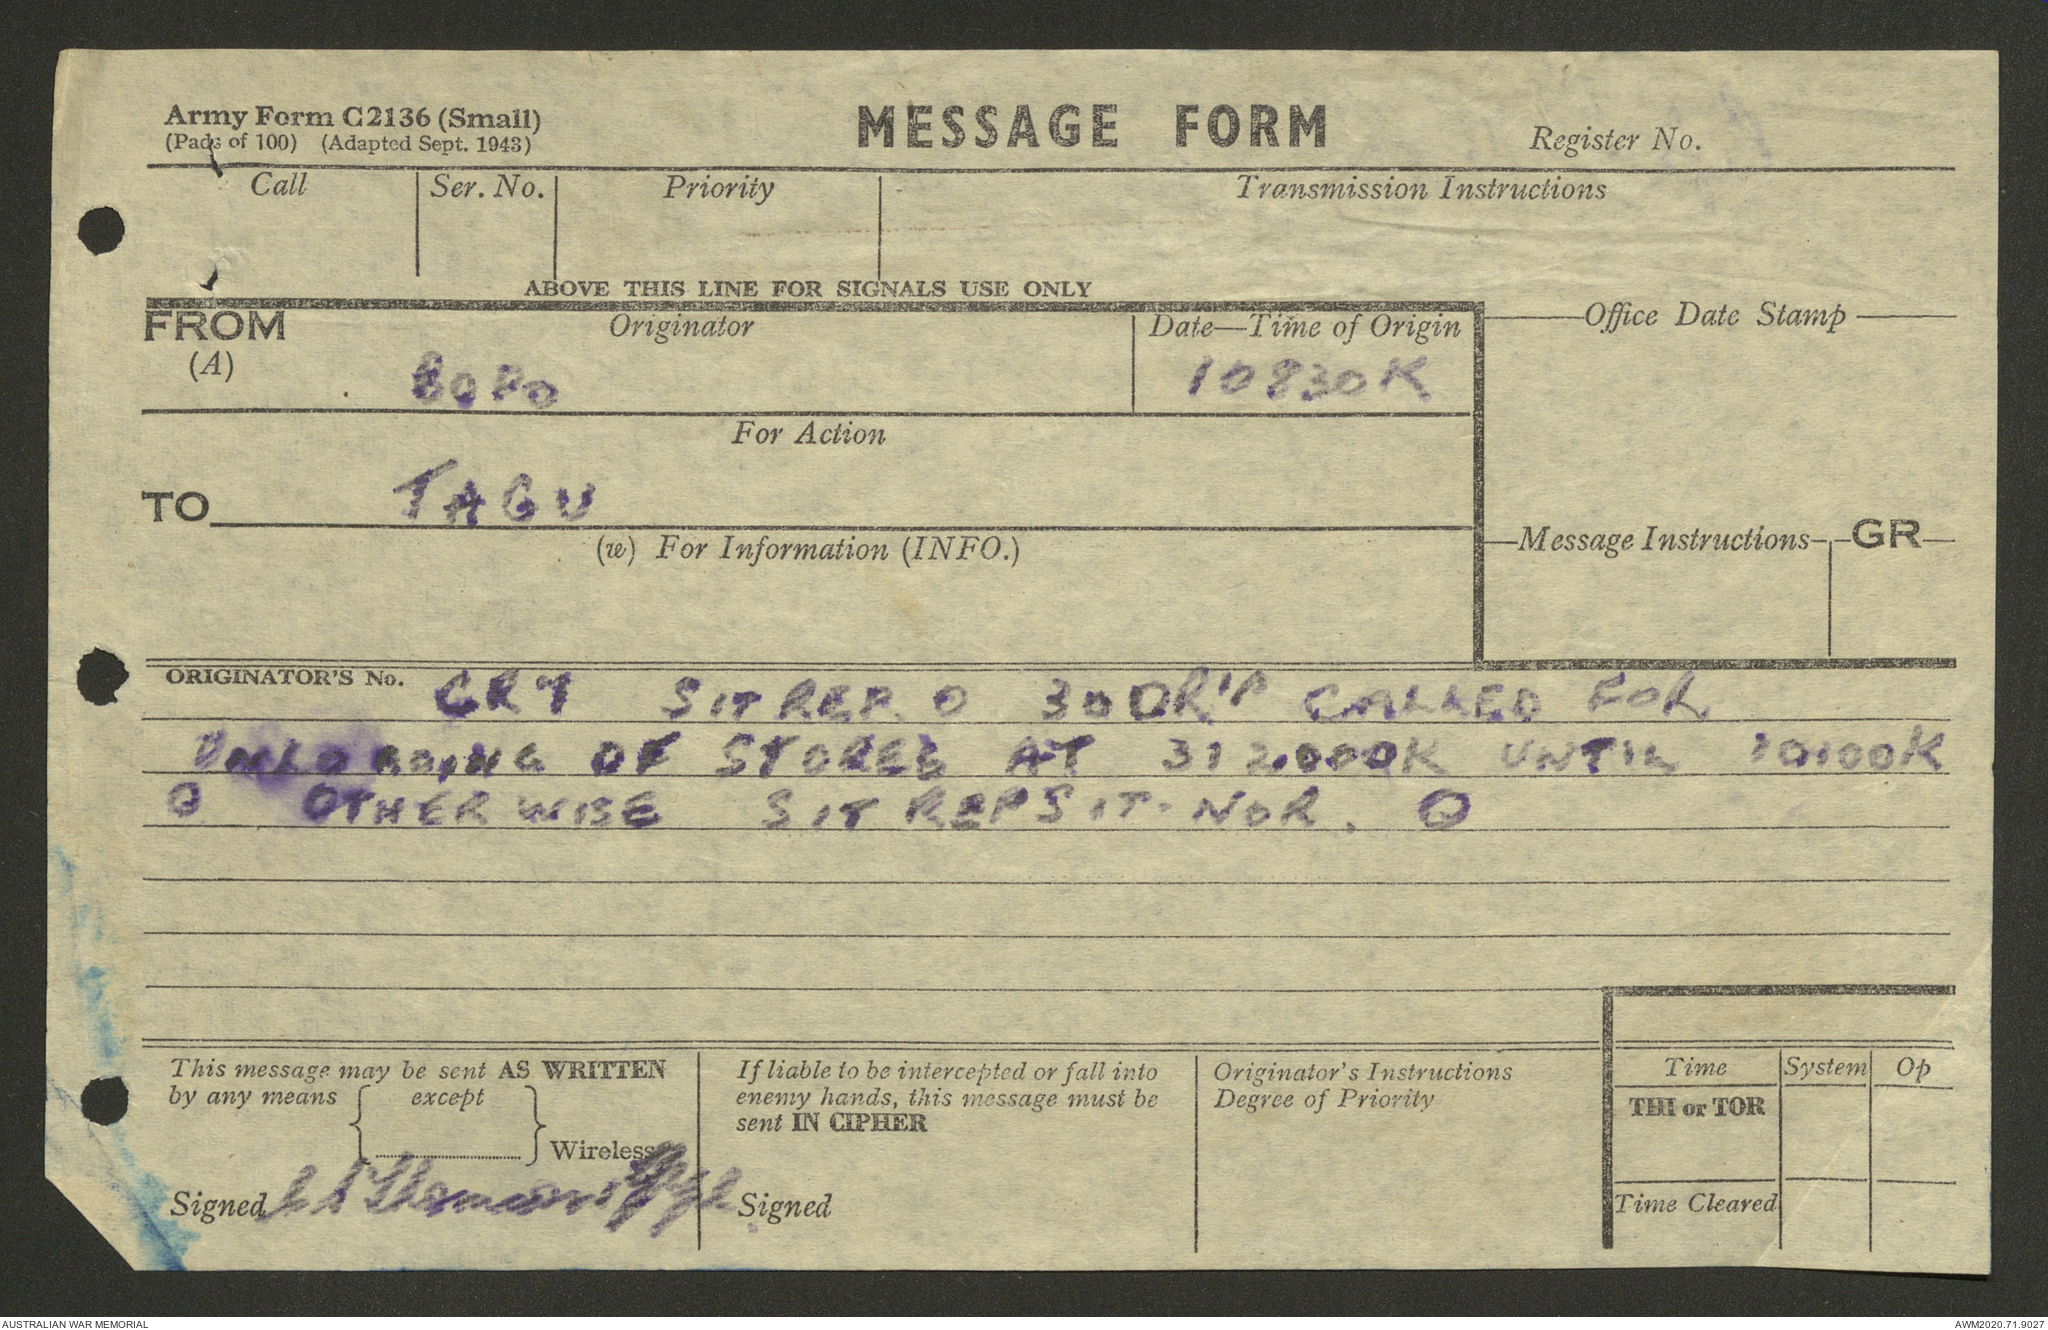 Army Form C2136 (Small)
(Pads of 100) (Adapted Sept. 1943)
MESSAGE FORM
Register No.
Call
Ser. No.
Priority
Transmission Instructions
ABOVE THIS LINE FOR SIGNALS USE ONLY
FROM
(A)
Originator
Date—Time of Origin
Office Date Stamp
10830K
For Action
TO
TAGU
(w) For Information (INFO.)
Message Instructions
GR
ORIGINATOR'S No.
SITREP O 30 OR'S CALLED FOR
UNLOADING OF STORES AT 312000K UNTIL 10100K
O OTHERWISE SITREP SIT. NOR. O
This message may be sent AS WRITTEN
by any means except
Wireless
Signed
If liable to be intercepted or fall into
enemy hands, this message must be
sent IN CIPHER
Signed
Originator's Instructions
Degree of Priority
Time
System
Op
THI or TOR
Time Cleared
AUSTRALIAN WAR MEMORIAL
AWM2020.71.9027